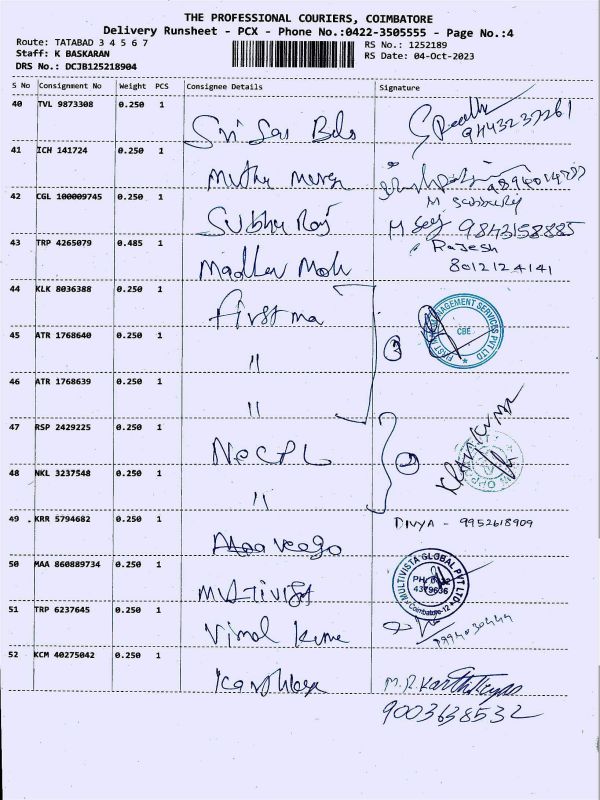 THE PROFESSIONAL COURIERS, COIMBATORE
Delivery Runsheet - PCX - Phone No.:0422-3505555 - Page No.:4
Route: TATABAD 3 4 5 6 7
Staff: K BASKARAN
DRS No.: DCJB125218904
RS No.: 1252189
RS Date: 04-Oct-2023
S No Consignment No Weight PCS Consignee Details Signature
40 TVL 9873308 0.250 1 Sri Sai
9443237261
41 ICH 141724 0.250 1
42 CGL 100009745 0.250 1 Subhu Raj
M 9843158885
43 TRP 4265079 0.485 1 Madhev
Rajesh
8012124141
44 KLK 8036388 0.250 1 First ma
FIRST MANAGEMENT SERVICES PVT LTD
CBE
45 ATR 1768640 0.250 1 "
3
46 ATR 1768639 0.250 1 "
47 RSP 2429225 0.250 1 NECPL
2
48 NKL 3237548 0.250 1 "
49 KRR 5794682 0.250 1
DIVYA - 9952618909
50 MAA 860889734 0.250 1 Multivist
MULTIVISTA GLOBAL PVT LTD
PH: 0422
4379636
Coimbatore-12
51 TRP 6237645 0.250 1 Vimal Kume
52 KCM 40275042 0.250 1
M.R.Karthikeyan
9003638532